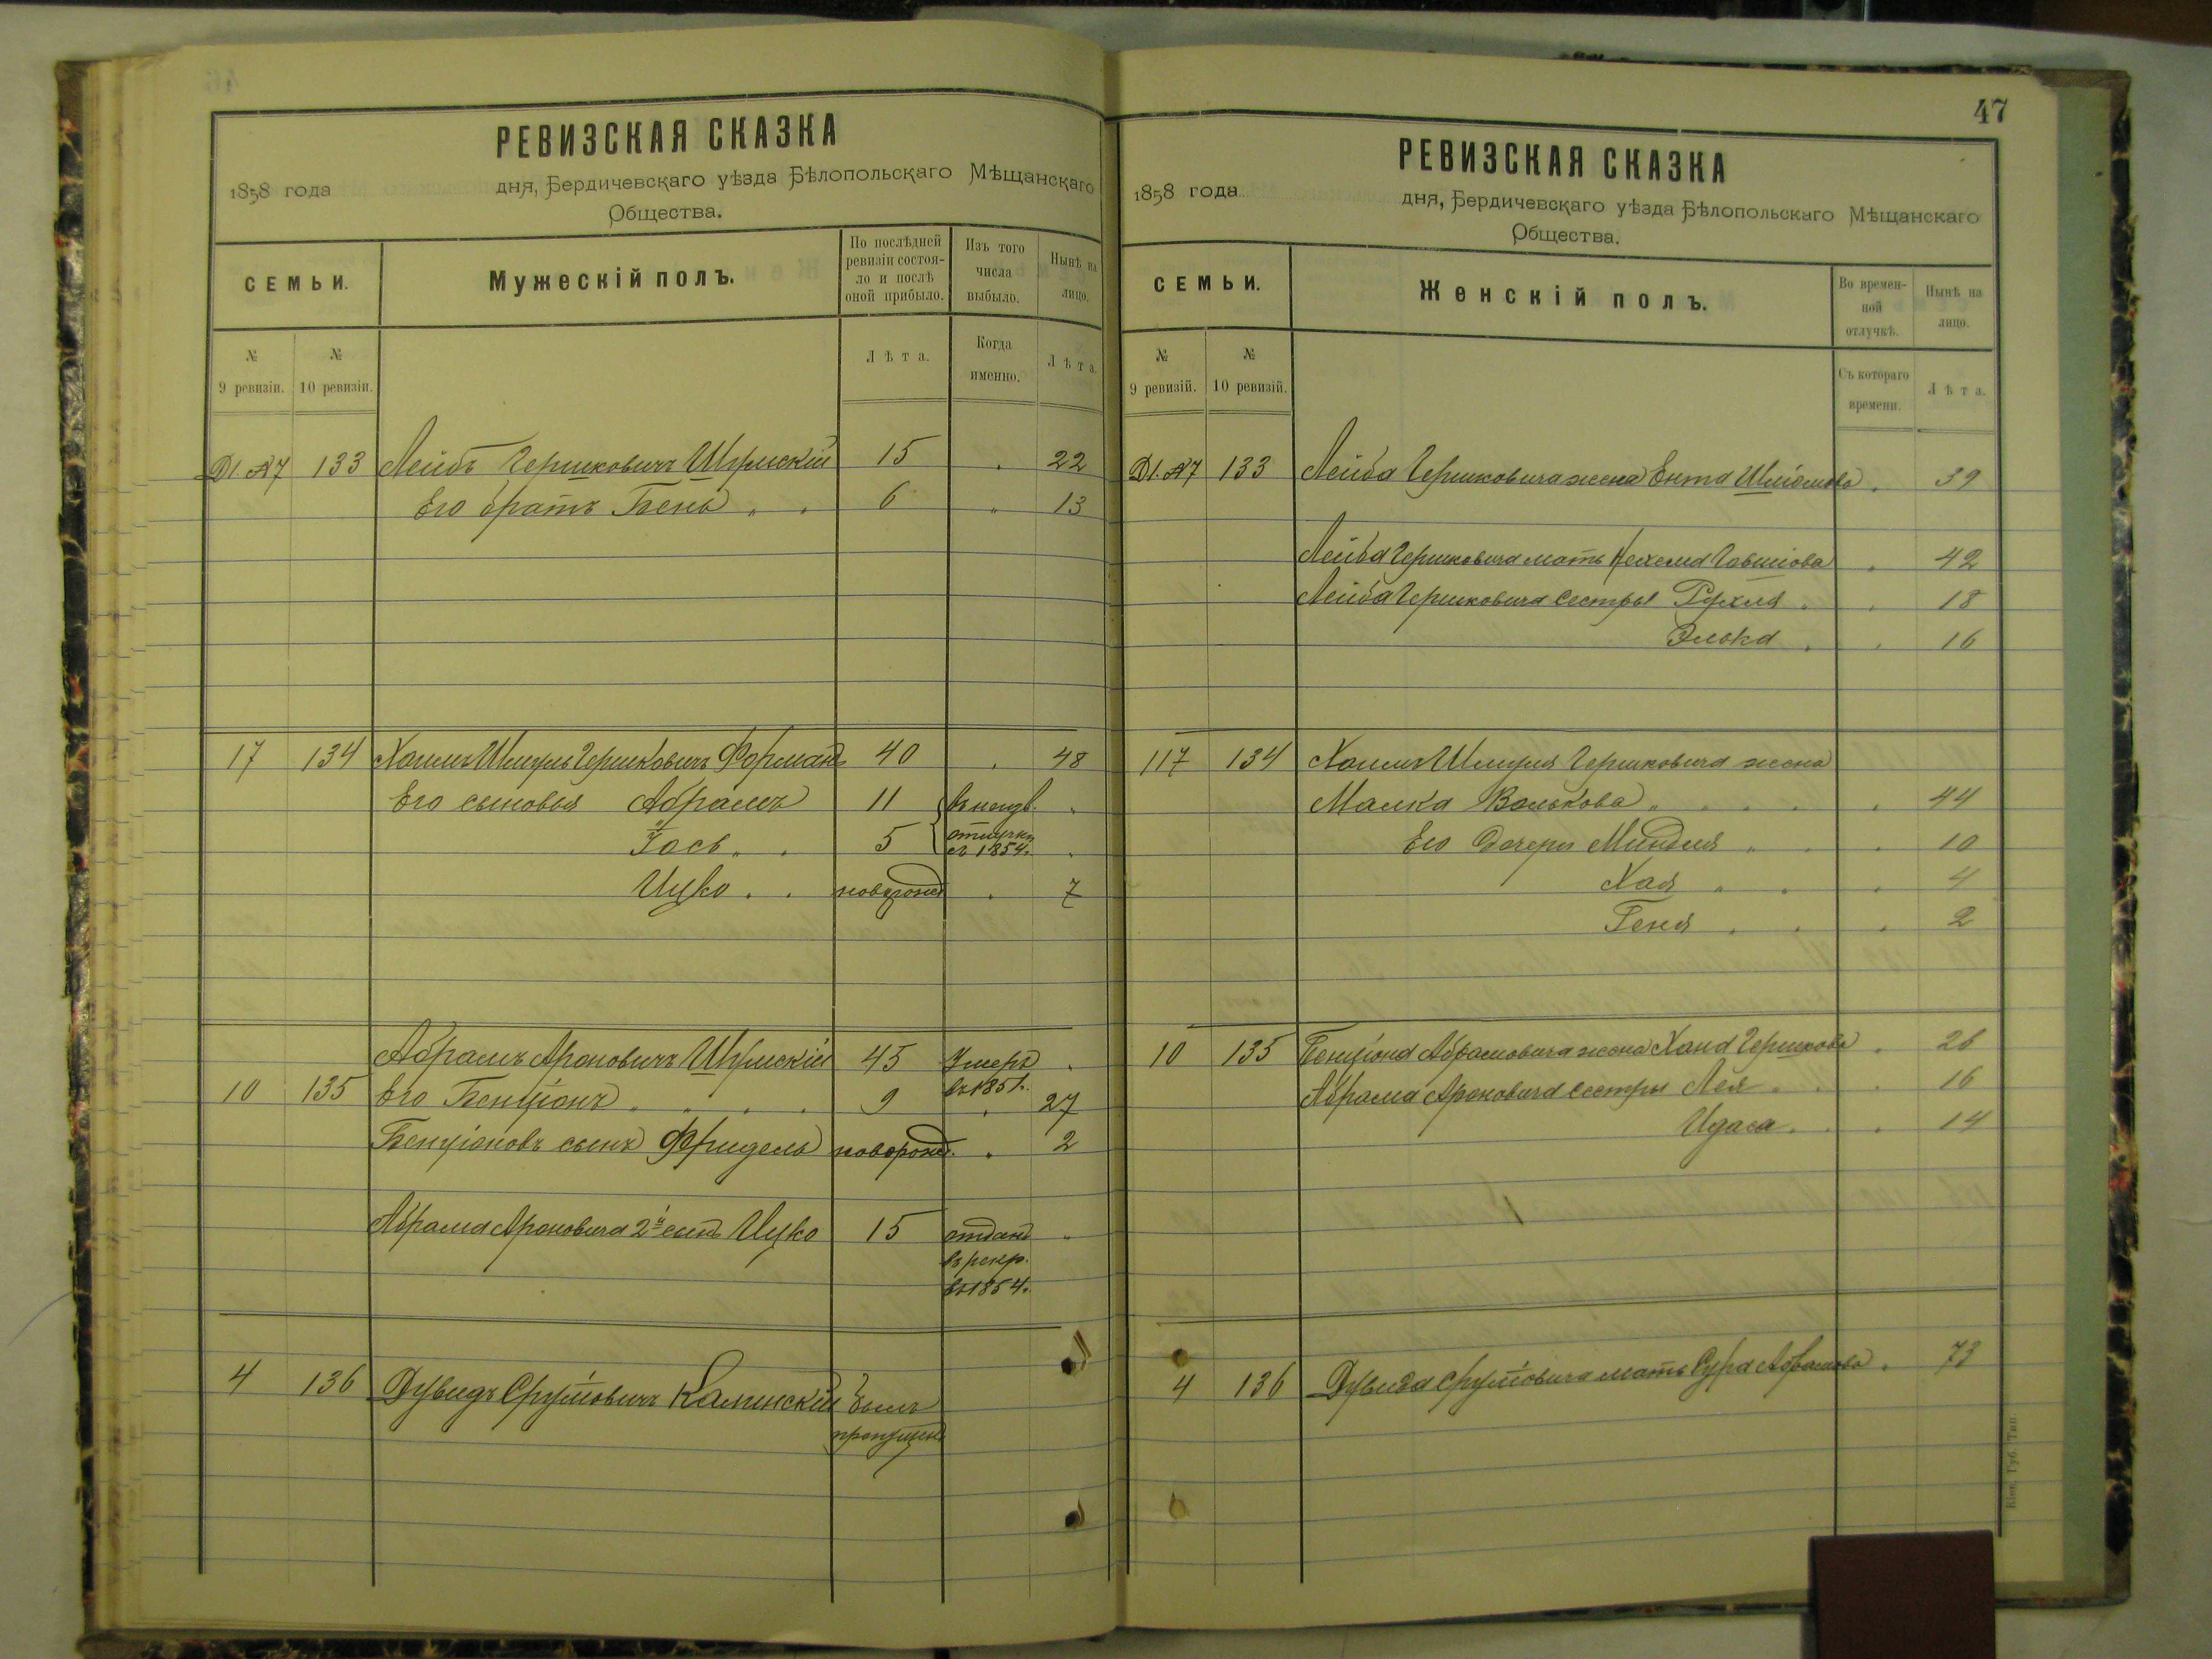 РЕВИЗСКАЯ СКАЗКА
1858 года дня, Бердичевскаго уѣзда Бѣлопольскаго Мѣщанскаго
Общества.
СЕМЬИ.
Мужескій полъ.
По послѣдней ревизіи состояло и послѣ оной прибыло.
Изъ того числа выбыло.
Нынѣ на лицо.
№ 9 ревизіи.
№ 10 ревизіи.
Лѣта.
Когда именно.
Лѣта.
133 Лейбъ Гершковичъ 15 22
Его братъ Бень 6 13
17 134 Хаимъ Шмуль Гершковичъ Форманъ 40 48
Его сыновья Абрамъ 11 въ неизв.
Іось 5 отлучкѣ съ 1854.
Ицко новорожд 7
Абрамъ Ароновичъ 45 Умеръ въ 1851.
10 135 Его Бенціонъ 9 27
Бенціоновъ сынъ Фридель новорожд. 2
Абрама Ароновича 2й сынъ Ицко 15 отданъ
въ рекр.
въ 1854.
4 136 Дувидъ Срулёвичъ Калинскій былъ
пропущенъ
47
РЕВИЗСКАЯ СКАЗКА
1858 года дня, Бердичевскаго уѣзда Бѣлопольскаго Мѣщанскаго
Общества.
СЕМЬИ.
Женскій полъ.
Во временной отлучкѣ.
Нынѣ на лицо.
№ 9 ревизій.
№ 10 ревизій.
Съ котораго времени.
Лѣта.
133 Лейба Гершковича жена Ента Шліомова 39
Лейба Гершковича мать Нехема 42
Лейба Гершковича сестры Рухля 18
Элька 16
117 134 Хаима Шмуля Гершковича жена
Малка Волькова 44
Его дочери Миндля 10
Хая 4
Геня 2
10 135 Бенціона Абрамовича жена Хана Гершкова 26
Абрама Ароновича сестры Лея 16
Идаса 14
4 136 Дувида Срулёвича мать Сура Абрамова 73
Кіев. Губ. Тип.